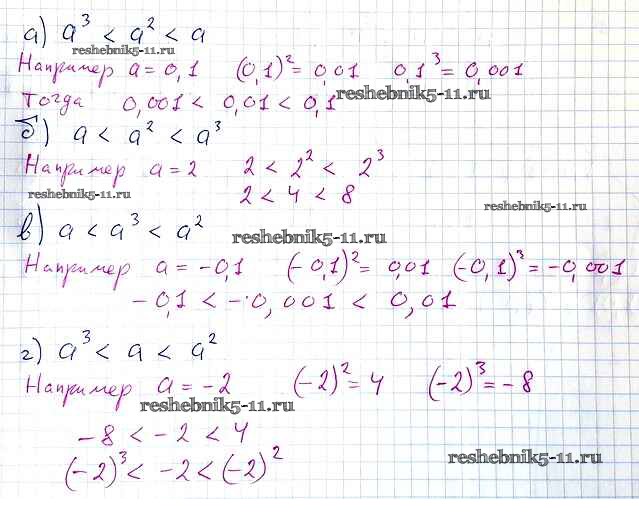 а) a³ < a² < a
reshebnik5-11.ru
Например a = 0,1 (0,1)² = 0,01 0,1³ = 0,001
Тогда 0,001 < 0,01 < 0,1
reshebnik5-11.ru
б) a < a² < a³
Например a = 2 2 < 2² < 2³
reshebnik5-11.ru
2 < 4 < 8
reshebnik5-11.ru
в) a < a³ < a²
reshebnik5-11.ru
Например a = -0,1 (-0,1)² = 0,01 (-0,1)³ = -0,001
-0,1 < -0,001 < 0,01
г) a³ < a < a²
Например a = -2 (-2)² = 4 (-2)³ = -8
reshebnik5-11.ru
-8 < -2 < 4
reshebnik5-11.ru
(-2)³ < -2 < (-2)²